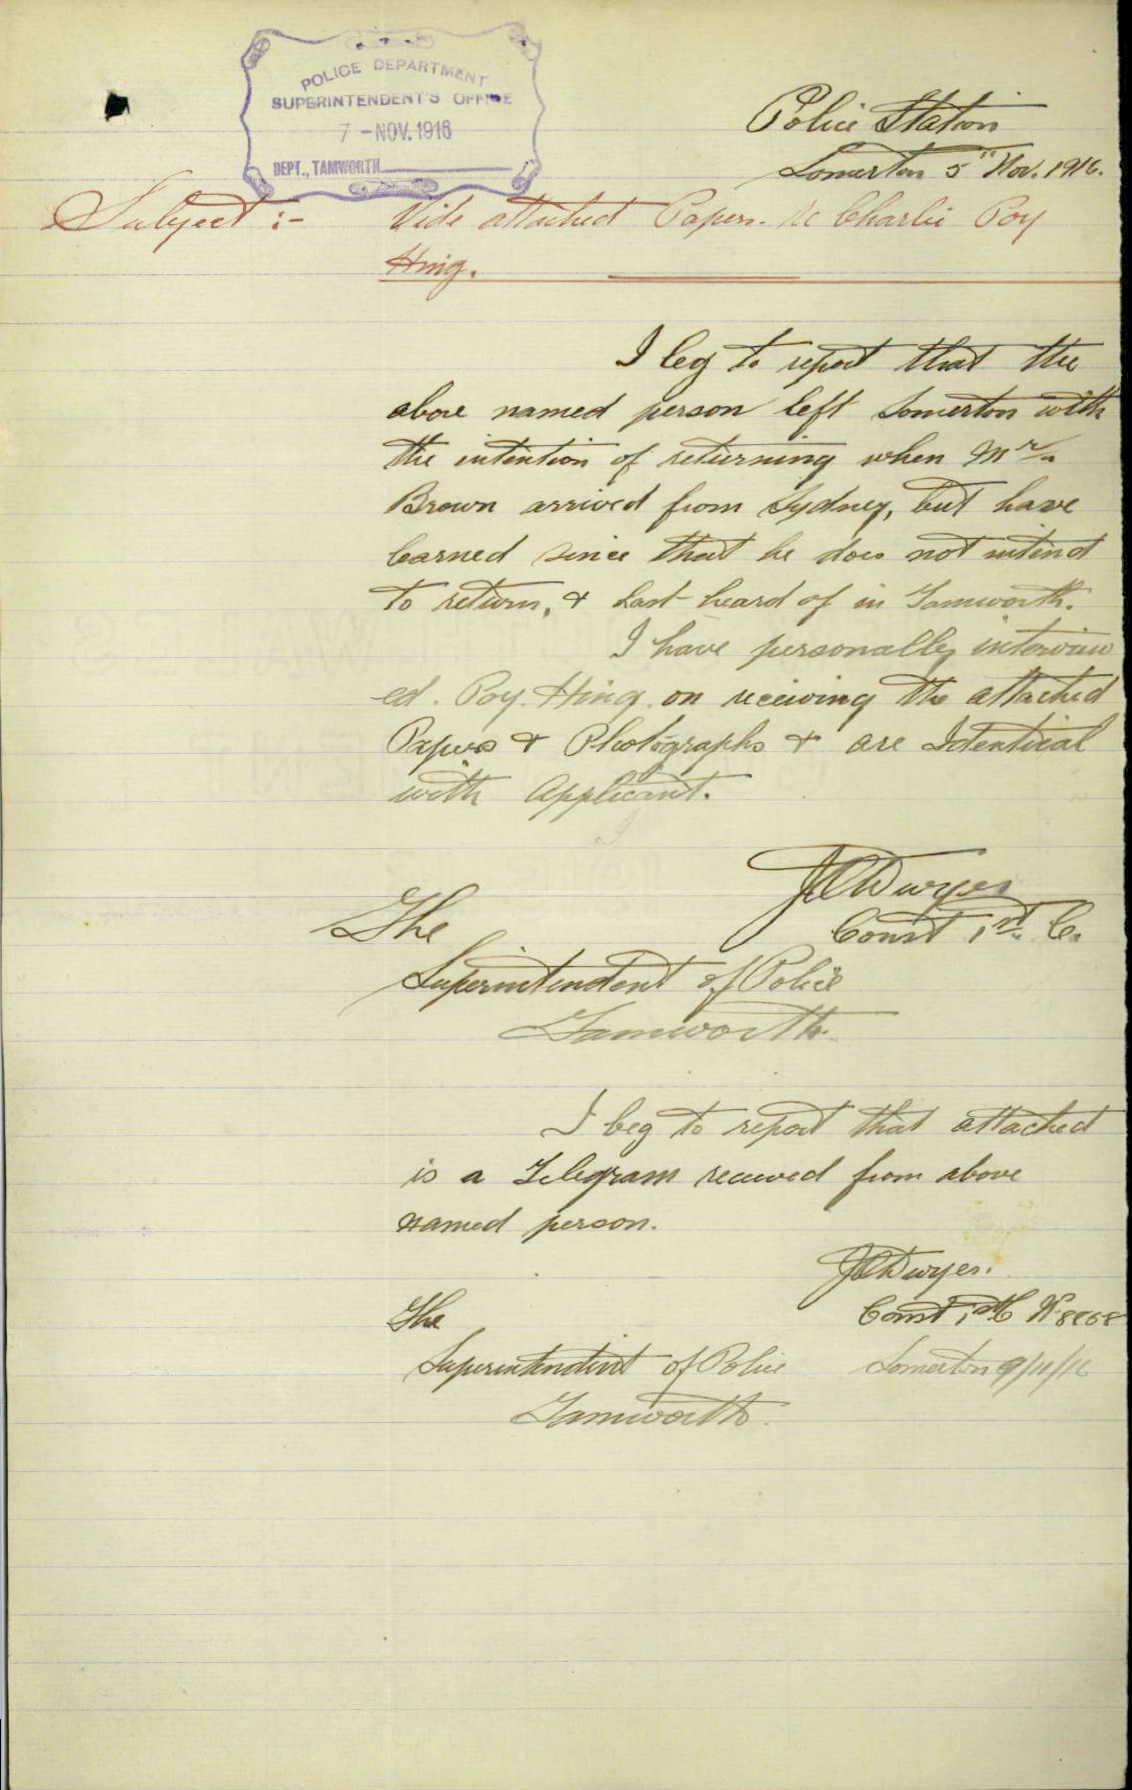 POLICE DEPARTMENT
SUPERINTENDENT'S OFFICE
7 - NOV. 1916
DEPT., TAMWORTH
Police Station
Somerton 5th Nov. 1916.
Subject :- Vide attached Papers. re Charlie Poy
Hing.
I beg to report that the
above named person left Somerton with
the intention of returning when Mrs.
Brown arrived from Sydney, but have
learned since that he does not intend
to return, & last heard of in Tamworth.
I have personally interview
ed. Poy. Hing. on receiving the attached
Papers & Photographs & are Identical
with Applicant.
Dwyer
The Const 1st C.
Superintendent of Police
Tamworth.
I beg to report that attached
is a Telegram received from above
named person.
Dwyer.
The Const 1st C No 8868
Superintendent of Police Somerton 9/11/16
Tamworth.